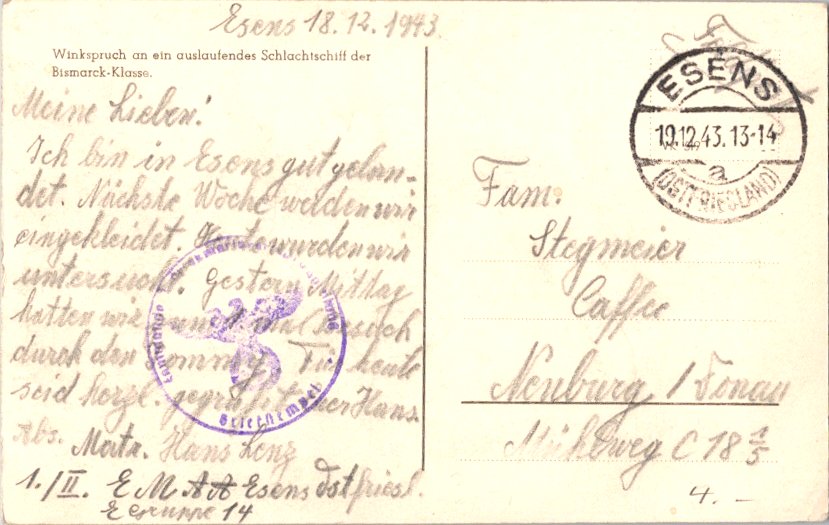 Esens 18.12.1943
Winkspruch an ein auslaufendes Schlachtschiff der
Bismarck-Klasse.
Meine Lieben!
Ich bin in Esens gut gelan-
det. Nächste Woche werden wir
eingekleidet. Heute wurden wir
untersucht. Gestern Mittag
hatten wir Besuch
durch den Tommy. Für heute
seid herzl. gegrüßt Euer Hans.
Abs. Matr. Hans Lenz
1./II. E M A A Esens Ostfriesl.
E Gruppe 14
Briefstempel
ESENS
19.12.43.13-14
a
(OSTFRIESLAND)
Fam:
Stegmeier
Caffee
Neuburg / Donau
Mühlweg C 18 1/5
4.-